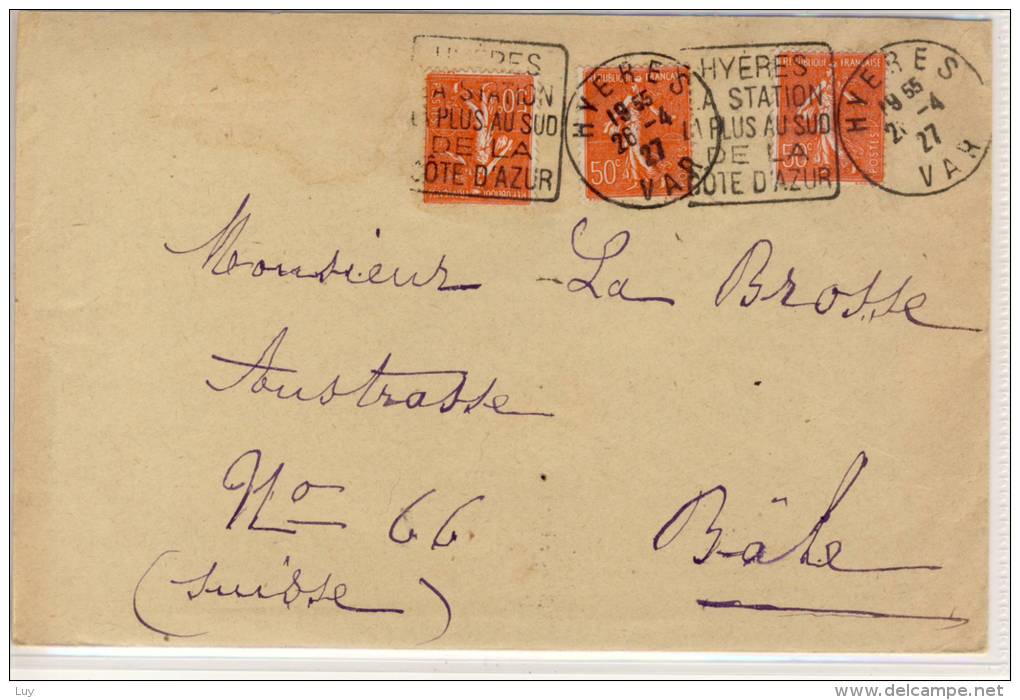 HYÈRES
LA STATION
LA PLUS AU SUD
DE LA
CÔTE D'AZUR
HYERES
19 55
26 -4
27
VAR
HYÈRES
LA STATION
LA PLUS AU SUD
DE LA
CÔTE D'AZUR
HYERES
19 55
26 -4
27
VAR
RÉPUBLIQUE FRANÇAISE
50c
RÉPUBLIQUE FRANÇAISE
50c
POSTES
Monsieur La Brosse
Austrasse
No 66 Bâle
(Suisse)
Luy
www.delcampe.net